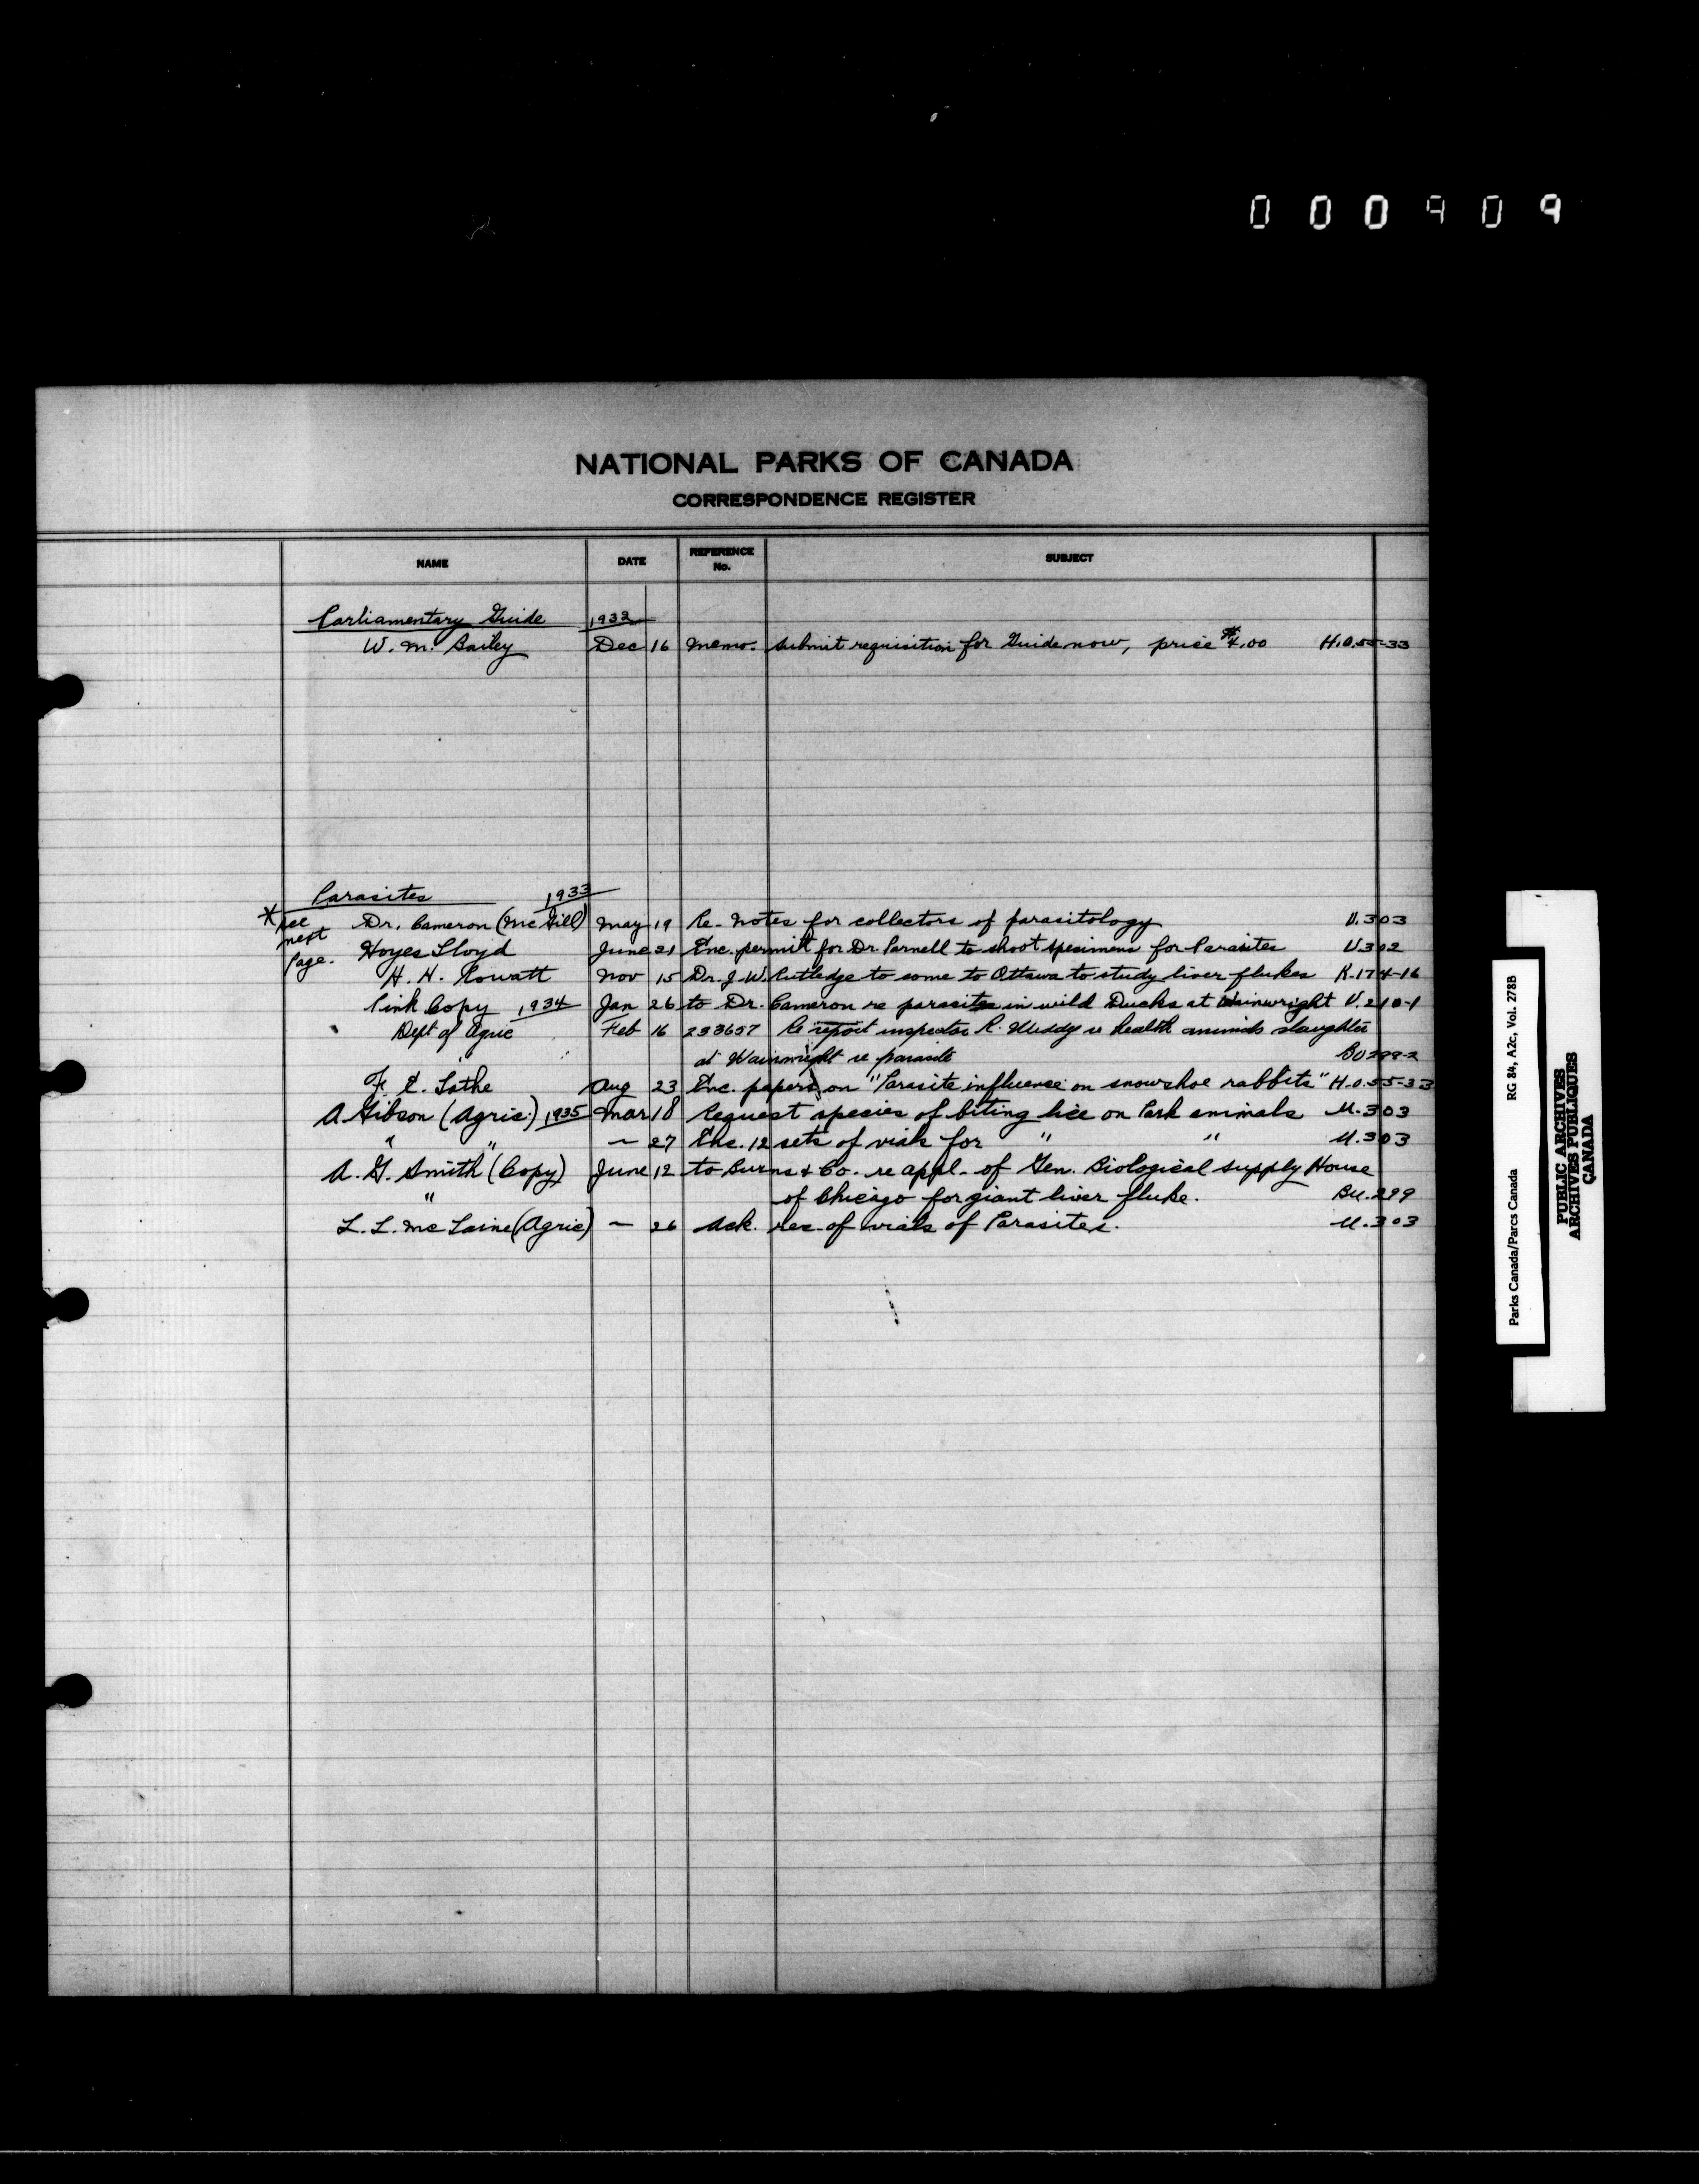 000909
NATIONAL PARKS OF CANADA
CORRESPONDENCE REGISTER
NAME DATE REFERENCE No. SUBJECT
Parliamentary Guide 1932
W. M. Bailey Dec 16 Memo. Submit requisition for Guide now, price $4.00 H.O.55-33
Parasites 1933
* see next Page.
Dr. Cameron (McGill) May 19 Re- Notes for collectors of parasitology U.303
Hoyes Lloyd June 21 Enc. permit for Dr. Parnell to shoot specimens for Parasites U.302
H. H. Rowatt Nov 15 Dr. J. W. Rutledge to come to Ottawa to study liver-flukes K.174-16
Pink Copy 1934 Jan 26 to Dr. Cameron re parasites in wild Ducks at Wainwright U.210-1
Dept of Agric Feb 16 233657 Re report inspector R. re health animals slaughter
at Wainwright re parasite BU299-2
F. E. Lathe Aug 23 Enc. papers on "Parasite influence on snowshoe rabbits" H.O.55-33
A. Gibson (Agric.) 1935 Mar 18 Request species of biting lice on Park animals U.303
" " ~ 27 Enc. 12 sets of vials for " " U.303
A. G. Smith (Copy) June 12 to Burns & Co. re appl. of Gen. Biological supply House
" of Chicago for giant liver fluke. BU.299
L. L. McLaine (Agric) ~ 26 Ack. rec. of vials of Parasites. U.303
Parks Canada/Parcs Canada RG 84, A2c, Vol. 278B
PUBLIC ARCHIVES
ARCHIVES PUBLIQUES
CANADA